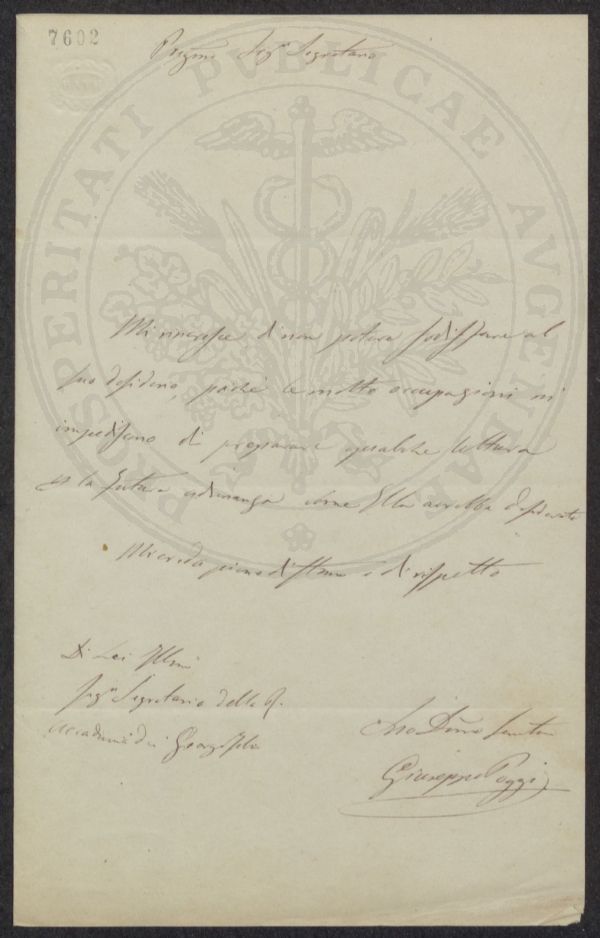 7602
PROSPERITATI PVBLICAE AVGENDAE
Pregmo Sigr Segretario
Mi rincresce di non potere sodisfare al
suo desiderio, poiché le molte occupazioni mi
impediscono di preparare qualche lettura
p la futura adunanza come Ella avrebbe desiderato
Mi creda pieno di stima e di rispetto
Di Lei Illmo
Sigr Segretario della R.
Accademia dei Georgofili
Suo Dmo Servitore
Giuseppe Poggi